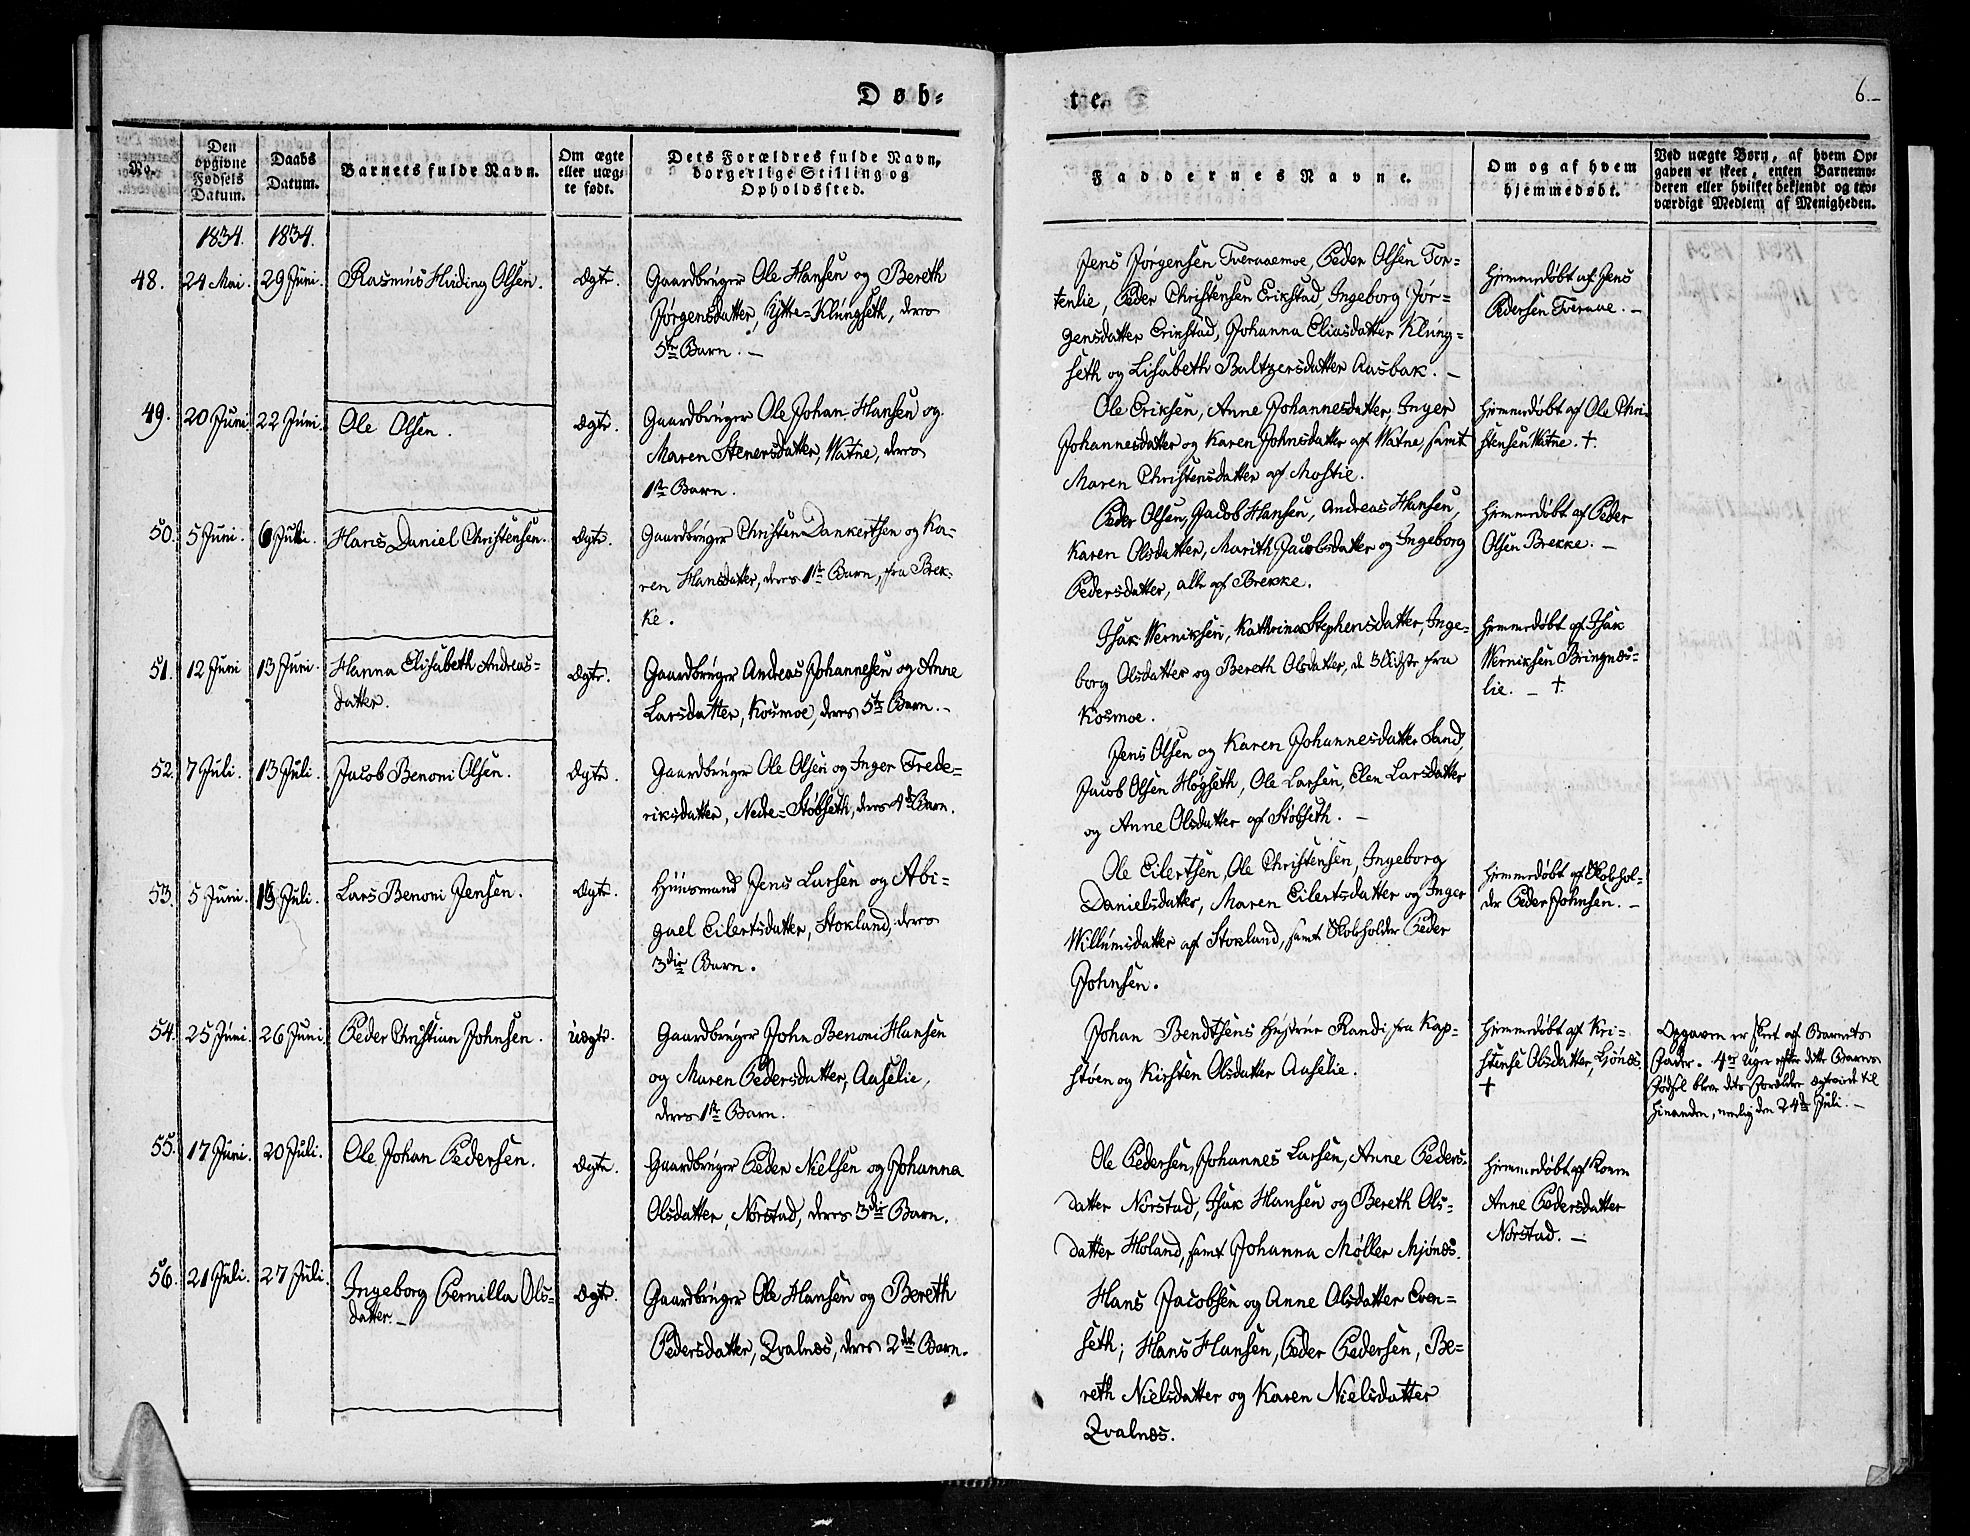 Døb-
No.
Den
opgivne
Fødsels
Datum.
Daabs
Datum.
Barnets fulde Navn.
Om ægte
eller uæg-
te født.
Dets Forældres fulde Navn,
borgerlige Stilling og
Opholdssted.
1834. 1834.
48. 24 Mai. 29 Juni. Rasmus Hiding Olsen. Ægte.
Gaardbruger Ole Hansen og Bereth
Jørgensdatter, Yttre=Klungseth, deres
5te Barn. –
49. 20 Juni. 22 Juni. Ole Olsen. Ægte.
Gaardbruger Ole Johan Hansen og
Maren Stenersdatter, Watne, deres
1te Barn.
50. 5 Juni. 6 Juli. Hans Daniel Christensen. Ægte.
Gaardbruger Christen Dankertsen og Ka-
ren Hansdatter, deres 1te Barn, fra Brek-
ke.
51. 12 Juni 13 Juni. Hanna Elisabeth Andreas=
datter. Ægte.
Gaardbruger Andreas Johannesen og Anne
Larsdatter, Kosmoe, deres 5te Barn. –
52. 7 Juli. 13 Juli. Jacob Benoni Olsen. Ægte.
Gaardbruger Ole Olsen og Inger Frede=
riksdatter, Nedre=Støbseth, deres 4de Barn.
53. 5 Juni. 13 Juli. Lars Benoni Jensen. Ægte.
Huusmand Jens Larsen og Abi=
gael Eilertsdatter, Stokland, deres
3die Barn.
54. 25 Juni. 26 Juni. Peder Christian Johnsen. Uægte.
Gaardbruger John Benoni Hansen
og Maren Pedersdatter, Aaselie,
deres 1te Barn.
55. 17 Juni. 20 Juli. Ole Johan Pedersen. Ægte.
Gaardbruger Peder Nielsen og Johanna
Olsdatter, Norstad, deres 3die Barn.
56. 21 Juli. 27 Juli. Ingeborg Pernilla Ols=
datter. – Ægte.
Gaardbruger Ole Hansen og Bereth
Pedersdatter, Qvalnæs, deres 2det Barn.
te.
6. –
Faddernes Navne.
Om og af hvem
hjemmedøbt.
Ved uægte Børn, af hvem Op-
gaven er skeet, enten Barnemo-
deren eller hvilket bekjendt og tro-
værdigt Medlem af Menigheden.
Jens Jørgensen Tveraaemoe, Peder Olsen Tor-
tenlie, Peder Christensen Erikstad, Ingeborg Jør-
gensdatter Erikstad, Johanna Eliasdatter Klung-
seth og Lisabeth Baltzersdatter Aasbak. –
Hjemmedøbt af Jens
Pedersen Tveraae. –
Ole Eriksen, Anne Johannesdatter, Inger
Johannesdatter og Karen Johnsdatter af Watne, samt
Maren Christensdatter af Mostie.
Hjemmedøbt af Ole Chri-
stensen Watne. †.
Peder Olsen, Jacob Hansen, Andreas Hansen,
Karen Olsdatter, Marith Jacobsdatter og Ingeborg
Pedersdatter, alle af Brekke.
Hjemmedøbt af Peder
Olsen Brekke. –
Isak Werniksen, Kathrina Stephensdatter, Inge=
borg Olsdatter og Bereth Olsdatter, de 3 Sidste fra
Kosmoe.
Hjemmedøbt af Isak
Werniksen Bringnæs-
lie. – †.
Jens Olsen og Karen Johannesdatter Sand,
Jacob Olsen Høgseth, Ole Larsen, Elen Larsdatter
og Anne Olsdatter af Støbseth. –
Ole Eilertsen, Ole Christensen, Ingeborg
Danielsdatter, Maren Eilertsdatter og Inger
Willumsdatter af Stokland, samt Skoleholder Peder
Johnsen.
Hjemmedøbt af Skolehol-
der Peder Johnsen. –
Johan Bendtsens Hustrue Randi, fra Kap-
støen og Kirsten Olsdatter Aaselie.
Hjemmedøbt af Kri-
stense Olsdatter,
†
Opgaven er skeet af Barnets
Fader. 4er Uger efter dette Barns
Fødsel bleve dets Forældre ægteviede til
hinanden, nemlig den 24de Juli. –
Ole Pedersen, Johannes Larsen, Anne Peders-
datter Norstad, Isak Hansen og Bereth Ols-
datter Holand, samt Johanna Møller Mjønæs.
Hjemmedøbt af Konen
Anne Pedersdatter
Norstad. –
Hans Jacobsen og Anne Olsdatter Even=
seth; Hans Hansen, Peder Pedersen, Be=
reth Nielsdatter og Karen Nielsdatter
Qvalnæs.